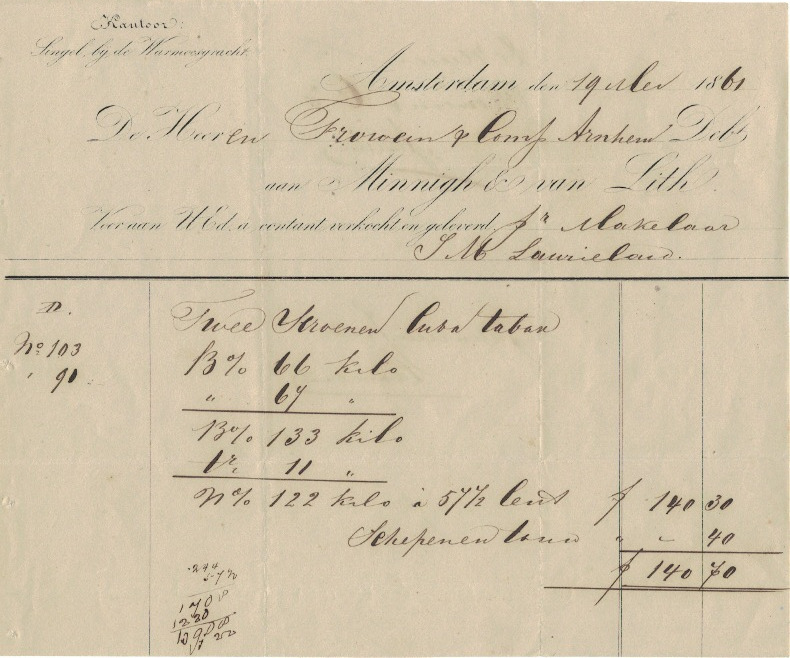 Kantoor:
Singel, by de Warmoesgracht.
Amsterdam den 19 Mei 1861
De Heeren Frowein & Comp Arnhem Debt
aan Minnigh & van Lith.
Voor aan UEd. a contant verkocht en geleverd pr Makelaar
S M
Twee Seroenen Cuba tabak
No 103 Bo/o 66 kilo
" 90 " 67 "
Bo/o 133 kilo
tr. 11 "
No/o 122 kilo à 57½ Cent f 140 30
Schepenen " - 40
f 140 70